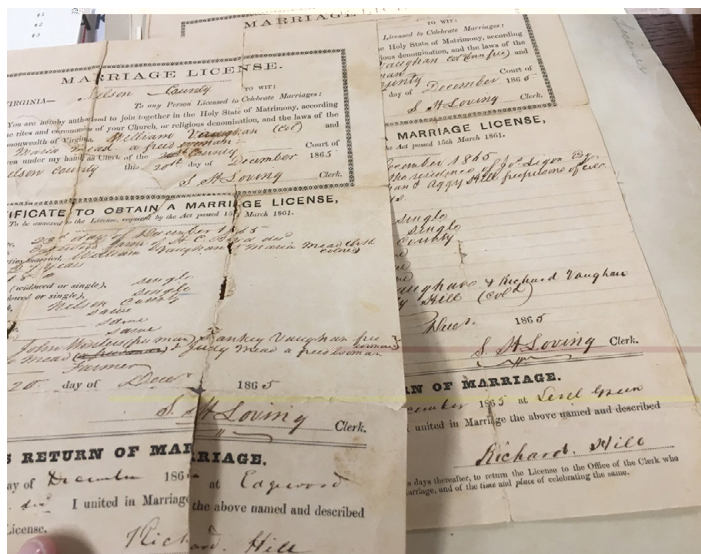 MARRIAGE LICENSE.
VIRGINIA— Nelson County TO WIT:
To any Person Licensed to Celebrate Marriages:
You are hereby authorised to join together in the Holy State of Matrimony, according
the rites and ceremonies of your Church, or religious denomination, and the laws of the
monwealth of Virginia, William Vaughan (Col) and
Maria Mead a free woman
under my hand as Clerk of the County Court of
elson County this 20th day of December 1865
S H Loving Clerk.
IFICATE TO OBTAIN A MARRIAGE LICENSE,
To be annexed to the License, required by the Act passed 15th March 1861.
23d day of December 1865
William Vaughan & Maria Mead both
colored
27 years
(widowed or single), single
dowed or single), single
Nelson County
same
same
same
John (freeman) & Vaughan free
woman
Mead & Judy Mead a free woman
Farmer
20 day of Decr 1865
S. H Loving Clerk.
S RETURN OF MARRIAGE.
ay of December 186 at Edgewood
I united in Marriage the above named and described
License.
Richard. Hill
MARRIAGE
TO WIT:
Licensed to Celebrate Marriages:
Holy State of Matrimony, according
ious denomination, and the laws of the
aughan col and
Court of
day of December 1865
S H Loving Clerk.
MARRIAGE LICENSE,
he Act passed 15th March 1861.
cember 1865
the residence of
and Aggy Hill
single
single
County
aughan & Richard Vaughan
Hill (Col)
Decr 1865
S. H Loving Clerk.
RN OF MARRIAGE.
cember 1865 at Level Green
united in Marriage the above named and described
Richard. Hill
days thereafter, to return the License to the Office of the Clerk who
arriage, and of the time and place of celebrating the same.